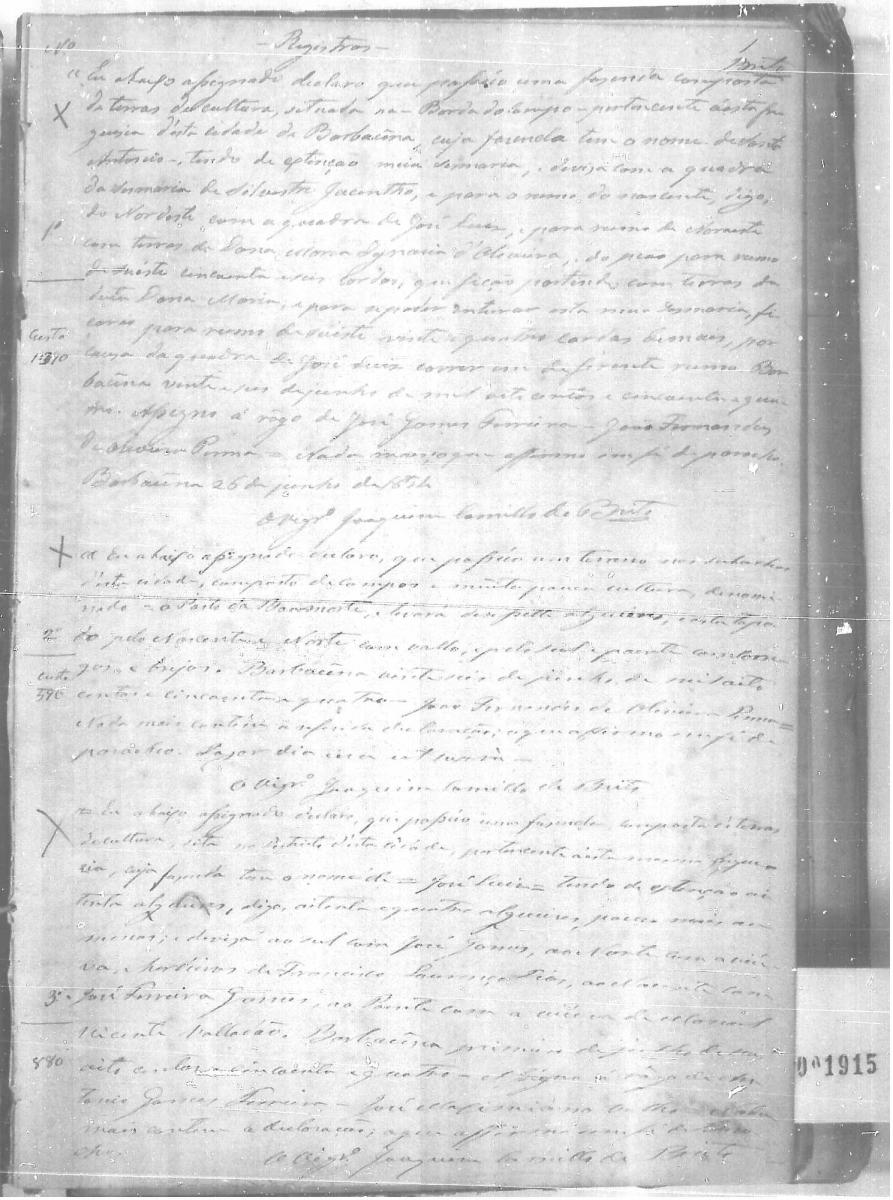 Nº - Registros - 1
Brito
" Eu abaixo assignado declaro que possúo uma fasenda composta
de terras de cultura, situada na - Borda do Campo - pertencente a esta fre
guesia d'esta cidade de Barbacêna, cuja fasenda tem o nome de Santo
Antonio -, tendo de extenção meia sismaria, e divisa com a quadra
da sismaria de Silvestre Jacintho, e para o rumo do nascente, digo,
do Nordeste com a quadra de José Luis, e para rumo de Noroeste
1º
com terras de Dona Maria Ignacia d'Oliveira, do piao para rumo
de suéste cincoenta e seis cordas, que ficão partindo com terras da
dita Dona Maria, e para se poder inteirar esta meia sismaria, fi
Custo
1310
carão para rumo de suéste vinte e quatro cordas de mais, por
causa da quadra de José Luis correr em differente rumo. Bar
bacêna vinte e seis de junho de mil oito centos e cincoenta e qua
tro. Assigno á rôgo de José Gomes Ferreira - João Fernandes
de Oliveira Penna = Nada mais, o que affirmo em fé de parocho.
Barbacêna 26 de junho de 1854
O Vigrº Joaquim Camillo de Brito
" Eu abaixo assignado declaro, que possúo um terreno nos suburbios
d'esta cidade, composto de campos e muito pouca cultura, denomi-
nado - o Pasto da Boamorte, e levará desesette alqueires, e está tapa
2º
do pelo Nascente e Norte com vallo, e pelo sul e poente com
Custo
590
e brejos. Barbacêna vinte seis de junho de mil oito
centos e cincoenta e quatro - João Fernandes de Oliveira Penna =
Nada mais continha a referida declaração; o que affirmo em fé de
parocho. dia era ut supra -
O Vigrº Joaquim Camillo de Brito
= Eu abaixo assignado declaro, que possúo uma fasenda composta de terras
de cultura, sita no districto d'esta cidade, pertencente a esta mesma fregue
sia, cuja fasenda tem o nome de = José Luis = tendo de extenção oi
tenta alqueires, digo, oitenta e quatro alqueires, pouco mais ou
menos; e divisa ao sul com José Gomes, ao Norte com a viu
va, e herdeiros de Francisco Lourenço Dias, ao Nascente com
3º
José Ferreira Gomes, ao Poente com a viuva de
Vicente Barbacêna primeiro de junho de mil
880
oito centos e cincoenta e quatro - Assigno a rôgo de An
tonio Gomes Ferreira - José Maximiano Nada
mais continha a declaração; o que affirmo em fé de paro
cho.
O Vigrº Joaquim Camillo de Brito
1915